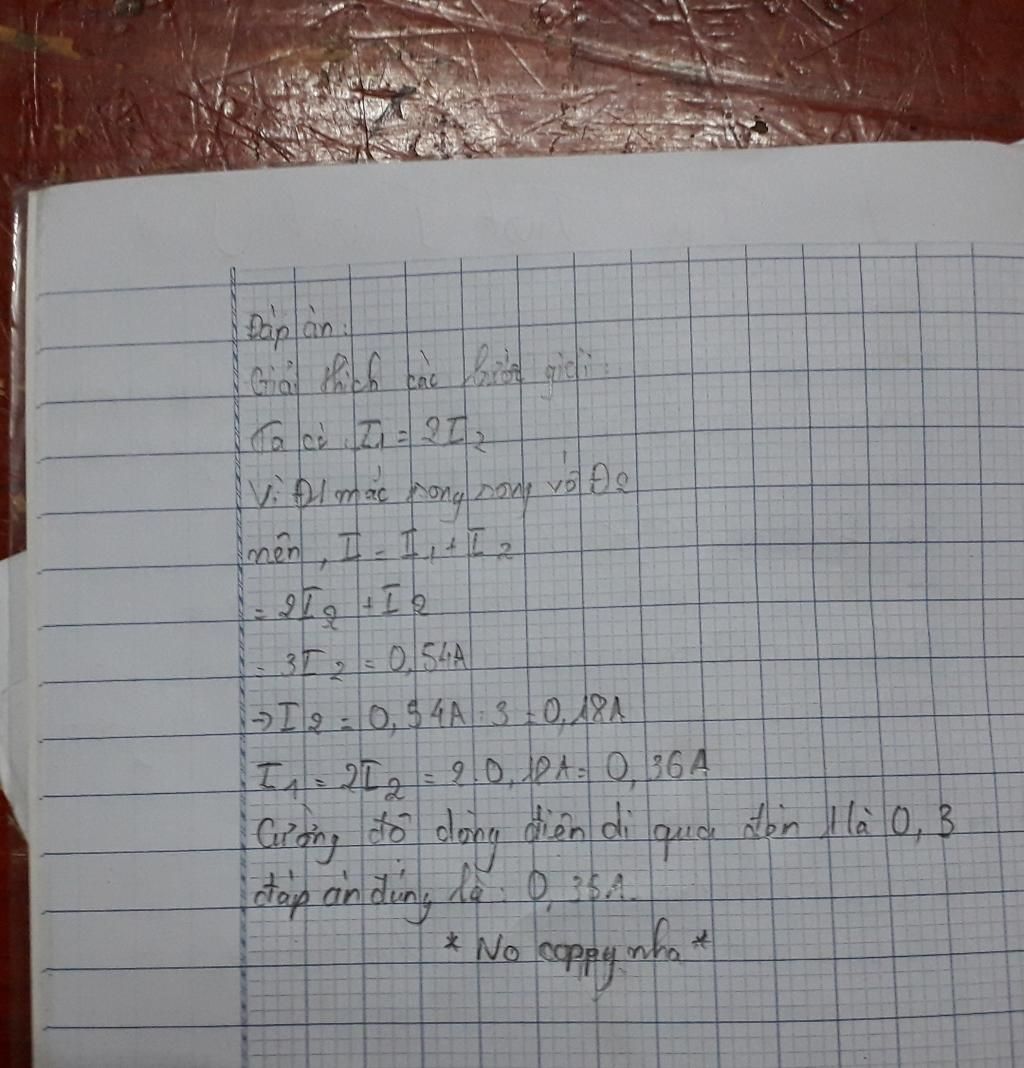 Đáp án:
Giải thích các bước giải:
Ta có: I1 = 2I2
Vì Đ1 mắc song song với Đ2
nên, I = I1 + I2
= 2I2 + I2
= 3I2 = 0,54A
→ I2 = 0,54A : 3 = 0,18A
I1 = 2I2 = 2.0,18A = 0,36A
Cường độ dòng điện đi qua đèn 1 là 0,3
đáp án đúng là: 0,36A.
* No coppy nha *